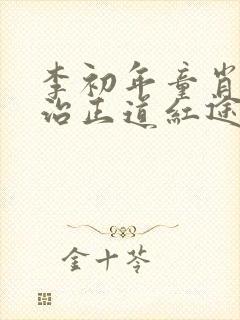 李初年童肖
治正道红途
金十苓